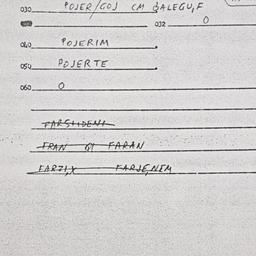 030 POJER/GOJ CM GALEGU,F
032 0
040 POJERIM
050 POJERTE
060 0
FARSLIDENI
FRAN GJ FARAN
FARJI,X FARJE,NEM